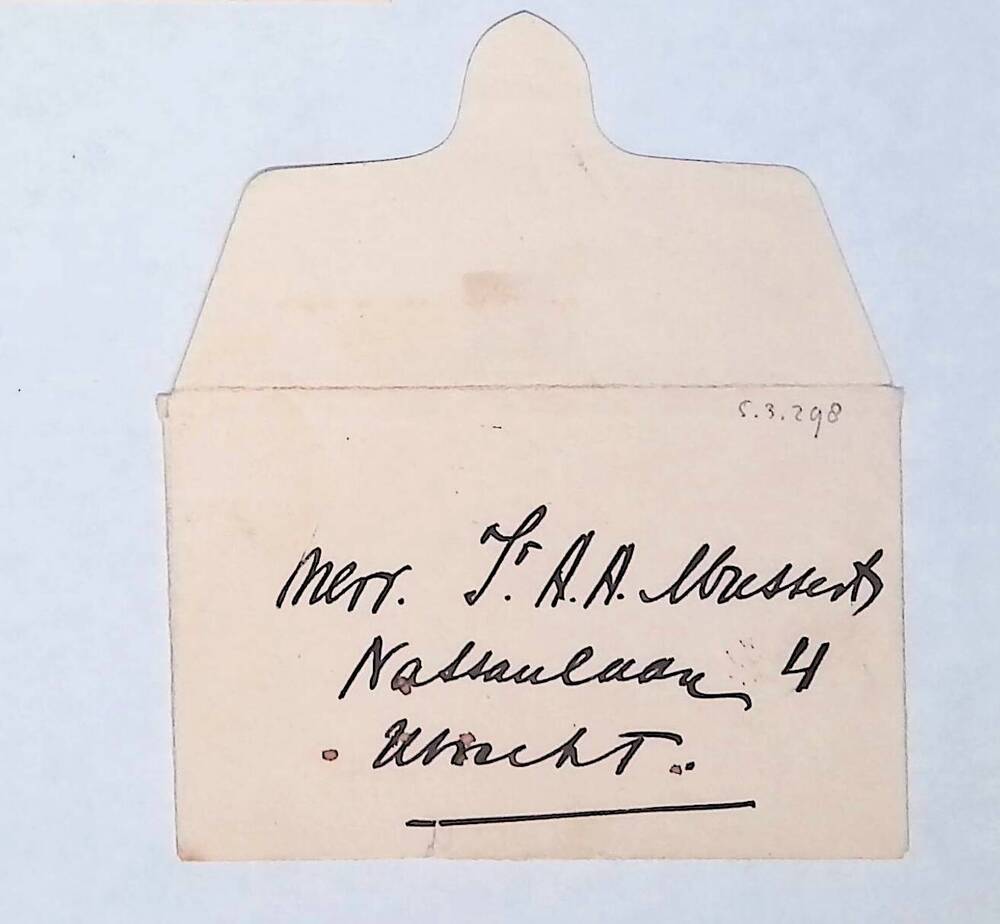 5.3.298
Mevr. Ir. A.A. Mussert
Nassaulaan 4
Utrecht.